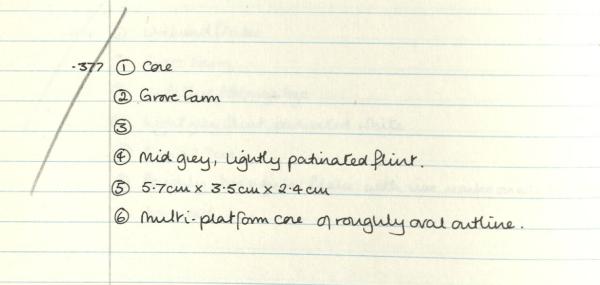 ·377 ① Core
② Grove Farm
③
④ Mid grey, lightly patinated flint.
⑤ 5.7cm x 3.5cm x 2.4cm
⑥ Multi-platform core of roughly oval outline.